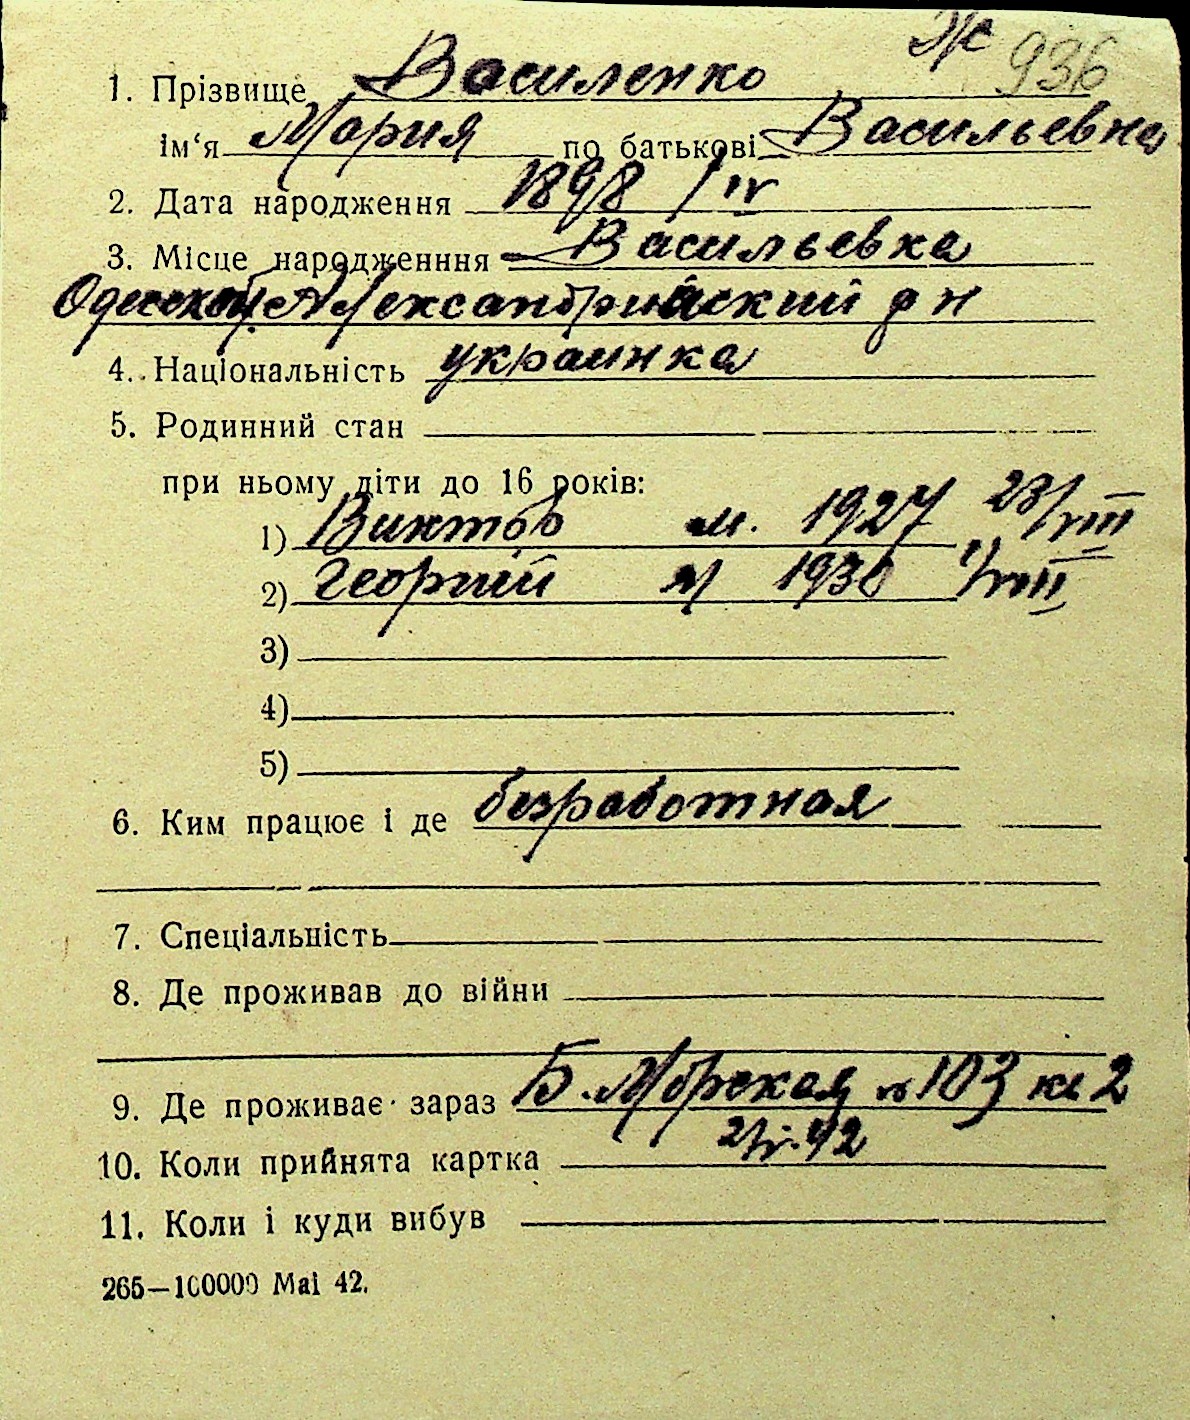 Ж 936
1. Прізвище Василенко
ім‘я Мария по батькові Васильевна
2. Дата народження 1898 1/IV
3. Місце народженння Васильевка
Одесской Александрийский р н
4. Національність украинка
5. Родинний стан
при ньому діти до 16 років:
1) Виктор м. 1927 23/VIII
2) Георгий м 1930 1/VIII
3)
4)
5)
6. Ким працює і де безработная
7. Спеціальність
8. Де проживав до війни
9. Де проживає зараз Б. Морская № 103 кв 2
10. Коли прийнята картка
11. Коли і куди вибув
265—100000 Mai 42.